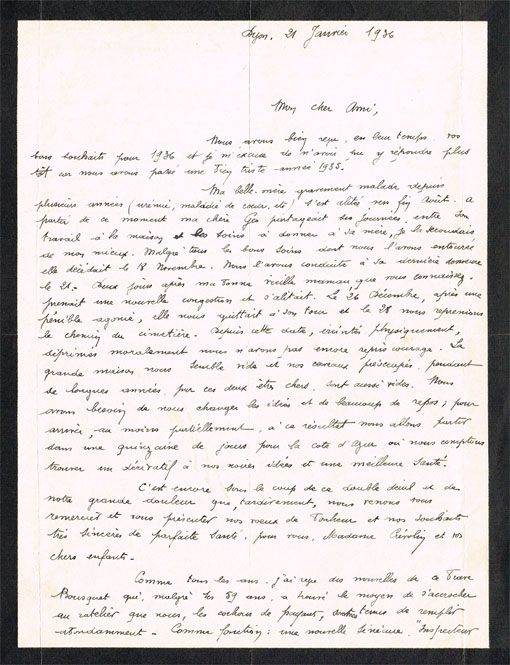 Lyon, 21 Janvier 1936
Mon cher Ami,
Nous avons bien reçu en leur temps vos
bons souhaits pour 1936 et je m'excuse de n'avoir pu y répondre plus
tôt car nous avons passé une bien triste année 1935.
Ma belle-mère gravement malade depuis
plusieurs années (urémie, maladie de cœur, etc) s'est alitée fin Août. A
partir de ce moment ma chère partageait ses journées entre son
travail à la maison et les soins à donner à sa mère, je la secondais
de mon mieux. Malgré tous les bons soins dont nous l'avons entourée
elle décédait le 18 Novembre. Nous l'avons conduite à sa dernière demeure
le 21. Deux jours après ma bonne vieille maman que vous connaissez
prenait une nouvelle congestion et s'alitait. Le 26 Décembre, après une
pénible agonie, elle nous quittait à son tour et le 28 nous reprenions
le chemin du cimetière. Depuis cette date, éreintés physiquement,
déprimés moralement nous n'avons pas encore repris courage. La
grande maison nous semble vide et nos cerveaux préoccupés pendant
de longues années par ces deux êtres chers sont aussi vides. Nous
avons besoin de nous changer les idées et de beaucoup de repos ; pour
arriver, au moins partiellement, à ce résultat nous allons partir
dans une quinzaine de jours pour la cote d'Azur où nous comptons
trouver un dérivatif à nos noires idées et une meilleure santé.
C'est encore sous le coup de ce double deuil et de
notre grande douleur que, tardivement, nous venons vous
remercier et vous présenter nos vœux de bonheur et nos souhaits
très sincères de parfaite santé pour vous, Madame et vos
chers enfants.
Comme tous les ans j'ai reçu des nouvelles de ce
Bousquet qui, malgré ses 59 ans a trouvé le moyen de s'accrocher
au ratelier que nous, les cochons de payants, sommes tenus de remplir
abondamment - Comme fonction : une nouvelle sinécure, "Inspecteur